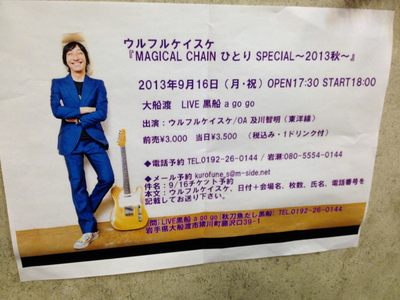 ウルフルケイスケ
『MAGICAL CHAIN ひとり SPECIAL～2013秋～』
2013年9月16日（月・祝）OPEN17:30 START18:00
大船渡 LIVE 黒船 a go go
出演：ウルフルケイスケ/OA 及川智明（東洋線）
前売¥3.000 当日¥3.500 （税込み・1ドリンク付）
◆電話予約 TEL.0192-26-0144 / 岩瀬:080-5554-0144
◆メール予約 kurofune_s@m-side.net
件名：9/16チケット予約
本文：ウルフルケイスケ、日付＋会場名、枚数、氏名、電話番号を
記載してお送り下さい。
問：LIVE黒船 a go go（秋刀魚だし黒船）TEL.0192-26-0144
岩手県大船渡市猪川町藤沢口39-1